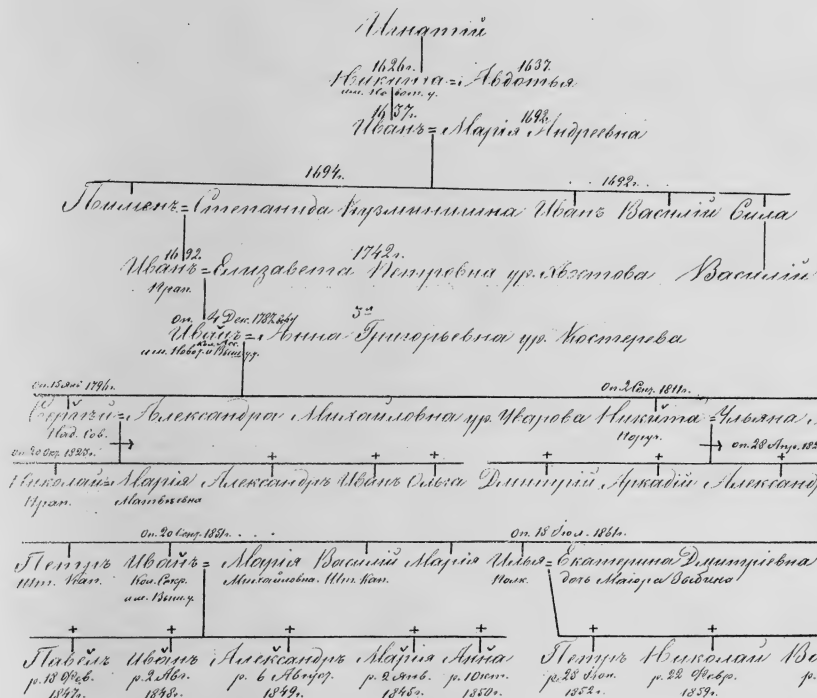 Игнатій
1626г. 1637.
Никита = Авдотья
им. Новот. у.
1637г. 1692.
Иванъ = Марія Андреевна
1694г. 1692г.
Пименъ = Степанида Кузминишна Иванъ Василій Сила
1692. 1742г.
Иванъ = Елизавета Петровна ур. Василій
Прап.
Оп. 4 Дек. 1787
Иванъ = Анна Григорьевна ур. Костерева
Кол. Асс.
им. Новот. и Выш. у.у.
Оп. 15 Янв 1794г. Оп. 2 Сент. 1811г.
Сергѣй = Александра Михайловна ур. Уварова Никита = Ульяна
Над. Сов. Поруч.
Оп. 20 Окт. 1823г. Оп. 28 Апр. 182
Николай = Марія Александръ Иванъ Ольга Дмитрій Аркадій Александр
Прап. Матвѣевна
Оп. 20 Сент. 1851г. Оп. 18 Іюл. 1861г.
Петръ Иванъ = Марія Василій Марія Илья = Екатерина Дмитріевна
Шт. Кап. Кол. Секр. Михайловна. Шт. Кап. Полк. дочь Маіора
им. Выш. у.
Павелъ Иванъ Александръ Марія Анна Петръ Николай Ва
р. 18 Фев. р. 2 Авг. р. 6 Август. р. 2 Янв. р. 10 кт. р. 28 р. 22 Февр. р.
1847г. 1848г. 1849г. 1845г. 1850г. 1852г. 1859г.